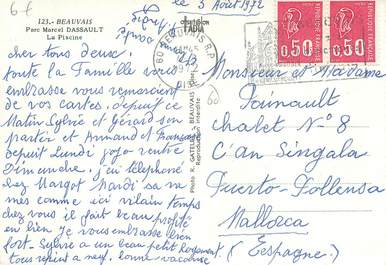 67
le 3 Août 1972
123.- BEAUVAIS
Parc Marcel DASSAULT
La Piscine
édition
FADIA
cher tous Deux.
toute la Famille vous
embrasse vous remercient
de vos cartes, depuis ce
Matin Sylvie et Gérard son
partir et Armand et
depuit Lundi jojo rentre
Dimanche. j'ai téléphoné
chez Margot Mardi sa va
mes comme ici vilain temps
chez vous il fait beau profité
en bien Je vous embrasse bien
fort - Sylvie a un beau petit
tous repeint a neuf. bonne vacance
Photo R. GATELIER, BEAUVAIS
Reproduction interdite
60 BEAUVAIS R.P.
OISE
RÉPUBLIQUE FRANÇAISE
0,50
RÉPUBLIQUE FRANÇAISE
0,50
Monsieur et Madame
Painault
chalet N° 8
C'an Singala
Puerto-Pollensa
Mallorca
(Espagne)